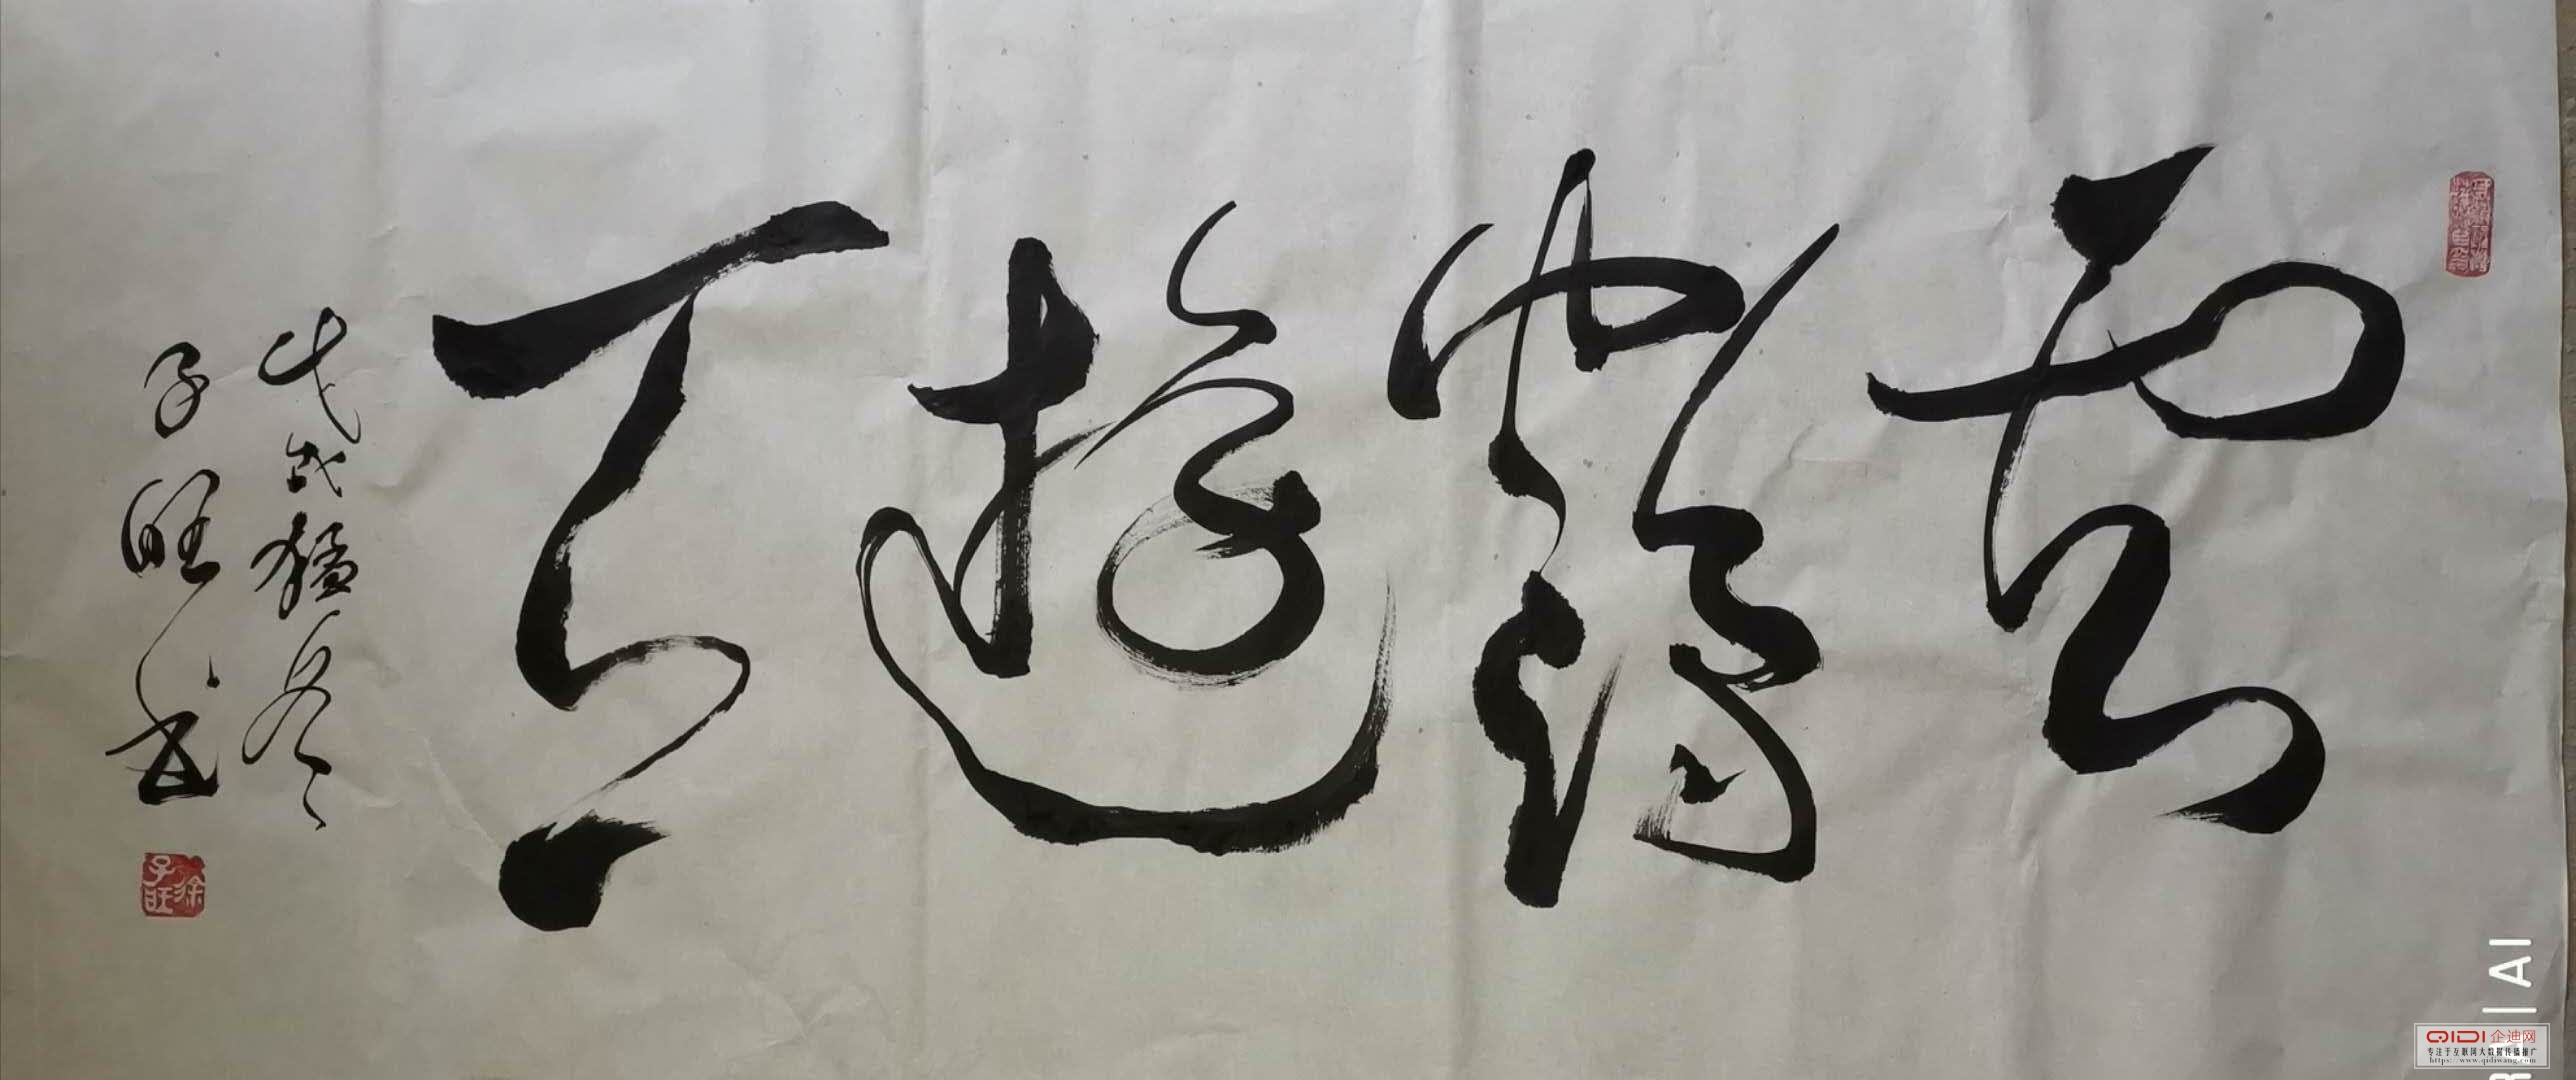 云鹤游天
戊戌猛冬
子旺书
徐子旺
AI
QIDI 企迪网
专注于互联网大数据传播推广
https://www.qidiwang.com